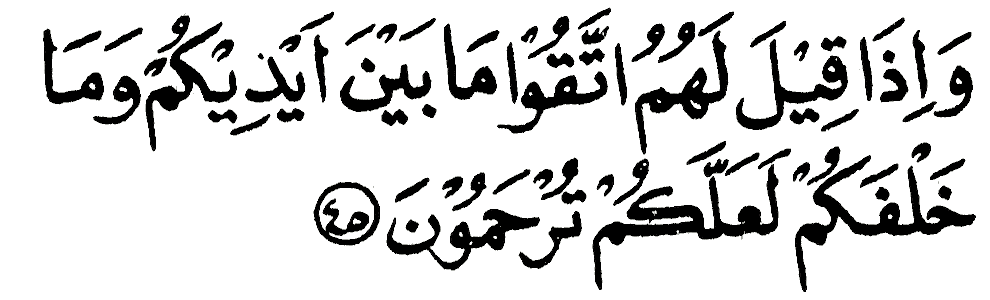 وَاِذَا قِيْلَ لَهُمُ اتَّقُوْا مَا بَيْنَ اَيْدِيْكُمْ وَمَا
خَلْفَكُمْ لَعَلَّكُمْ تُرْحَمُوْنَ ۝٤٥